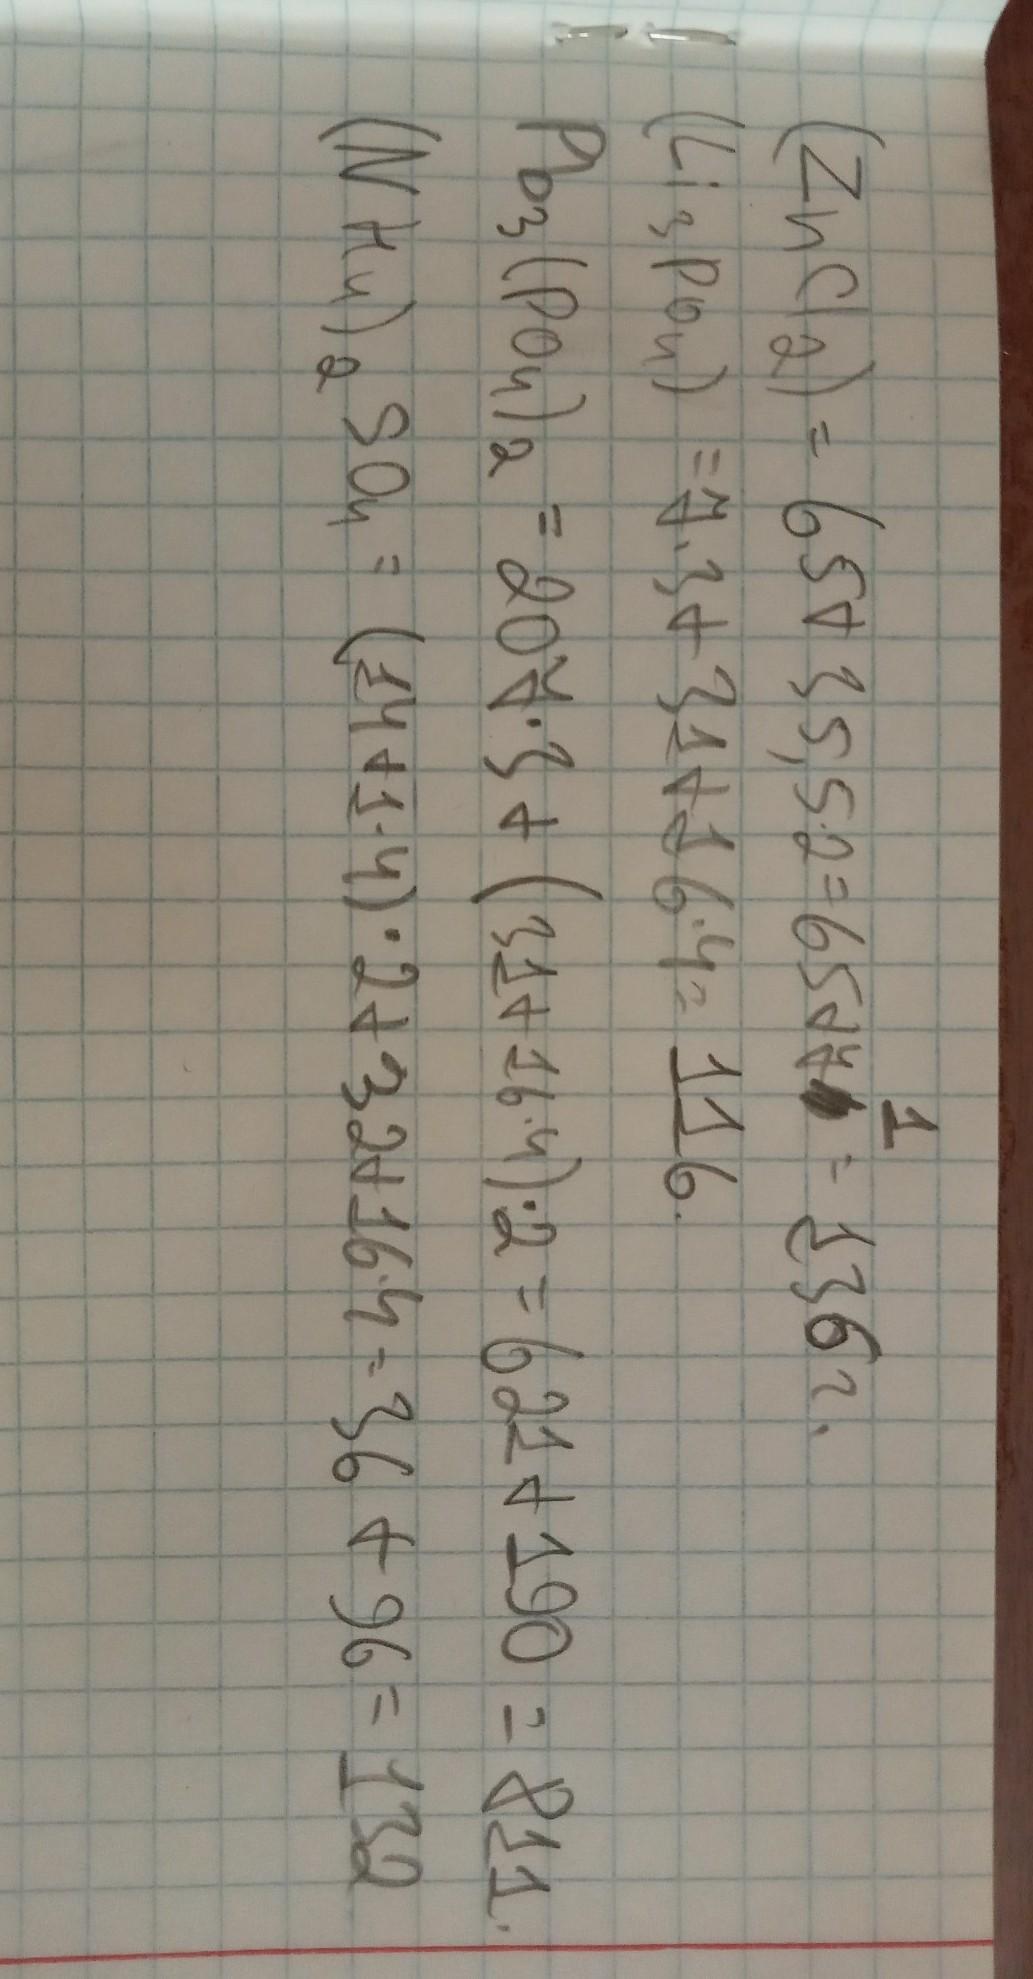 (ZnCl₂) = 65+35,5·2=65+71 = 136г.
(Li₃PO₄) =7·3+31+16·4= 116.
Pb₃(PO₄)₂ = 207·3+(31+16·4)·2=621+190=811.
(NH₄)₂SO₄=(14+1·4)·2+32+16·4=36+96=132